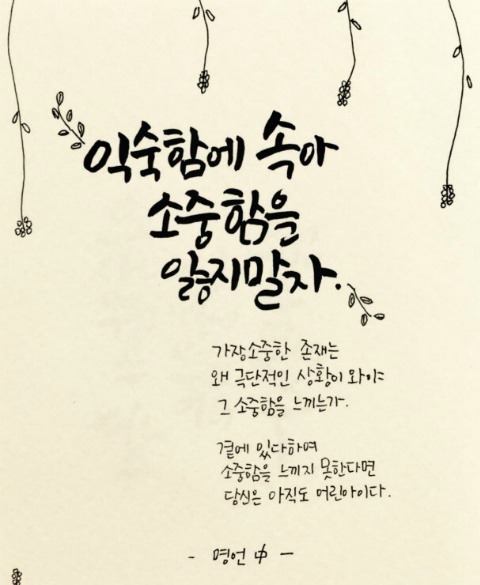 익숙함에 속아
소중함을
잃지말자.
가장소중한 존재는
왜 극단적인 상황이 와야
그 소중함을 느끼는가.
곁에 있다하여
소중함을 느끼지 못한다면
당신은 아직도 어린아이다.
- 명언 中 -